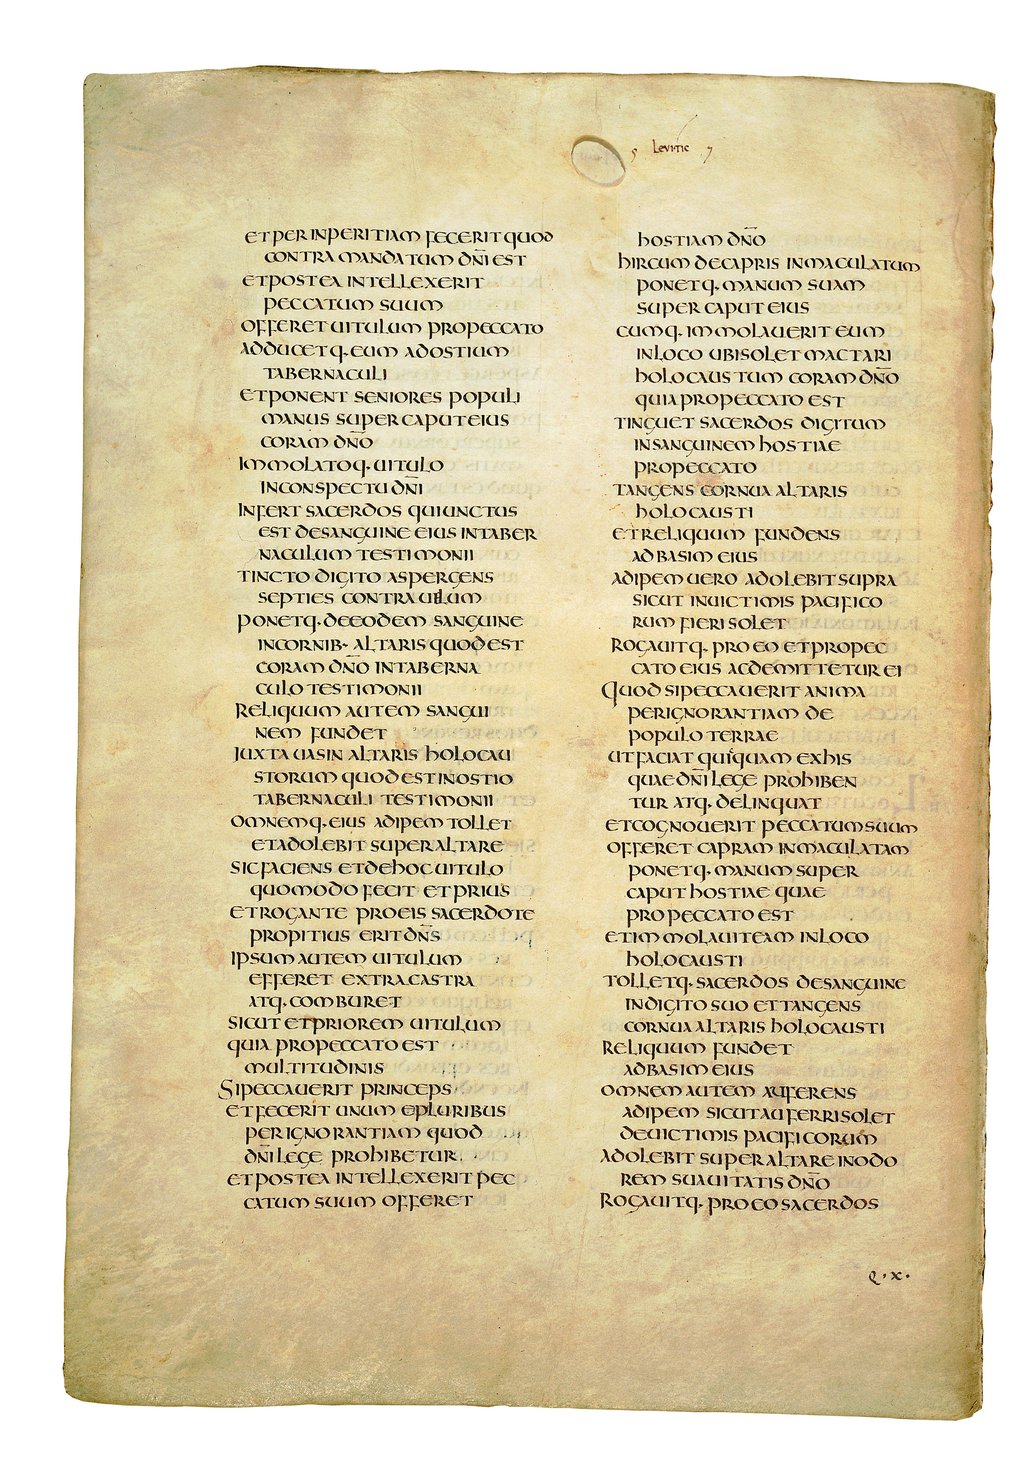 Levitic
ET PER INPERITIAM FECERIT QUOD
CONTRA MANDATUM DN̄I EST
ET POSTEA INTELLEXERIT
PECCATUM SUUM
OFFERET UITULUM PRO PECCATO
ADDUCETQ· EUM AD OSTIUM
TABERNACULI
ET PONENT SENIORES POPULI
MANUS SUPER CAPUT EIUS
CORAM DN̄O
IMMOLATOQ· UITULO
IN CONSPECTU DN̄I
INFERT SACERDOS QUI UNCTUS
EST DE SANGUINE EIUS IN TABER
NACULUM TESTIMONII
TINCTO DIGITO ASPERGENS
SEPTIES CONTRA UELUM
PONETQ· DE EODEM SANGUINE
IN CORNIB· ALTARIS QUOD EST
CORAM DN̄O IN TABERNA
CULO TESTIMONII
RELIQUUM AUTEM SANGUI
NEM FUNDET
IUXTA UASIN ALTARIS HOLOCAU
STORUM QUOD EST IN OSTIO
TABERNACULI TESTIMONII
OMNEMQ· EIUS ADIPEM TOLLET
ET ADOLEBIT SUPER ALTARE
SIC FACIENS ET DE HOC UITULO
QUOMODO FECIT ET PRIUS
ET ROGANTE PRO EIS SACERDOTE
PROPITIUS ERIT DN̄S
IPSUM AUTEM UITULUM
EFFERET EXTRA CASTRA
ATQ· COMBURET
SICUT ET PRIOREM UITULUM
QUIA PRO PECCATO EST
MULTITUDINIS
SI PECCAUERIT PRINCEPS
ET FECERIT UNUM E PLURIBUS
PER IGNORANTIAM QUOD
DN̄I LEGE PROHIBETUR
ET POSTEA INTELLEXERIT PEC
CATUM SUUM OFFERET
HOSTIAM DN̄O
HIRCUM DE CAPRIS INMACULATUM
PONETQ· MANUM SUAM
SUPER CAPUT EIUS
CUMQ· IMMOLAUERIT EUM
IN LOCO UBI SOLET MACTARI
HOLOCAUSTUM CORAM DN̄O
QUIA PRO PECCATO EST
TINGUET SACERDOS DIGITUM
IN SANGUINEM HOSTIAE
PRO PECCATO
TANGENS CORNUA ALTARIS
HOLOCAUSTI
ET RELIQUUM FUNDENS
AD BASIM EIUS
ADIPEM UERO ADOLEBIT SUPRA
SICUT IN UICTIMIS PACIFICO
RUM FIERI SOLET
ROGAUITQ· PRO EO ET PRO PEC
CATO EIUS AC DEMITTETUR EI
QUOD SI PECCAUERIT ANIMA
PER IGNORANTIAM DE
POPULO TERRAE
UT FACIAT QUIQUAM EX HIS
QUAE DN̄I LEGE PROHIBEN
TUR ATQ· DELINQUAT
ET COGNOUERIT PECCATUM SUUM
OFFERET CAPRAM INMACULATAM
PONETQ· MANUM SUPER
CAPUT HOSTIAE QUAE
PRO PECCATO EST
ET IMMOLAUIT EAM IN LOCO
HOLOCAUSTI
TOLLETQ· SACERDOS DE SANGUINE
IN DIGITO SUO ET TANGENS
CORNUA ALTARIS HOLOCAUSTI
RELIQUUM FUNDET
AD BASIM EIUS
OMNEM AUTEM AUFERENS
ADIPEM SICUT AUFERRI SOLET
DE UICTIMIS PACIFICORUM
ADOLEBIT SUPER ALTARE IN ODO
REM SUAUITATIS DN̄O
ROGAUITQ· PRO EO SACERDOS
Q·X·